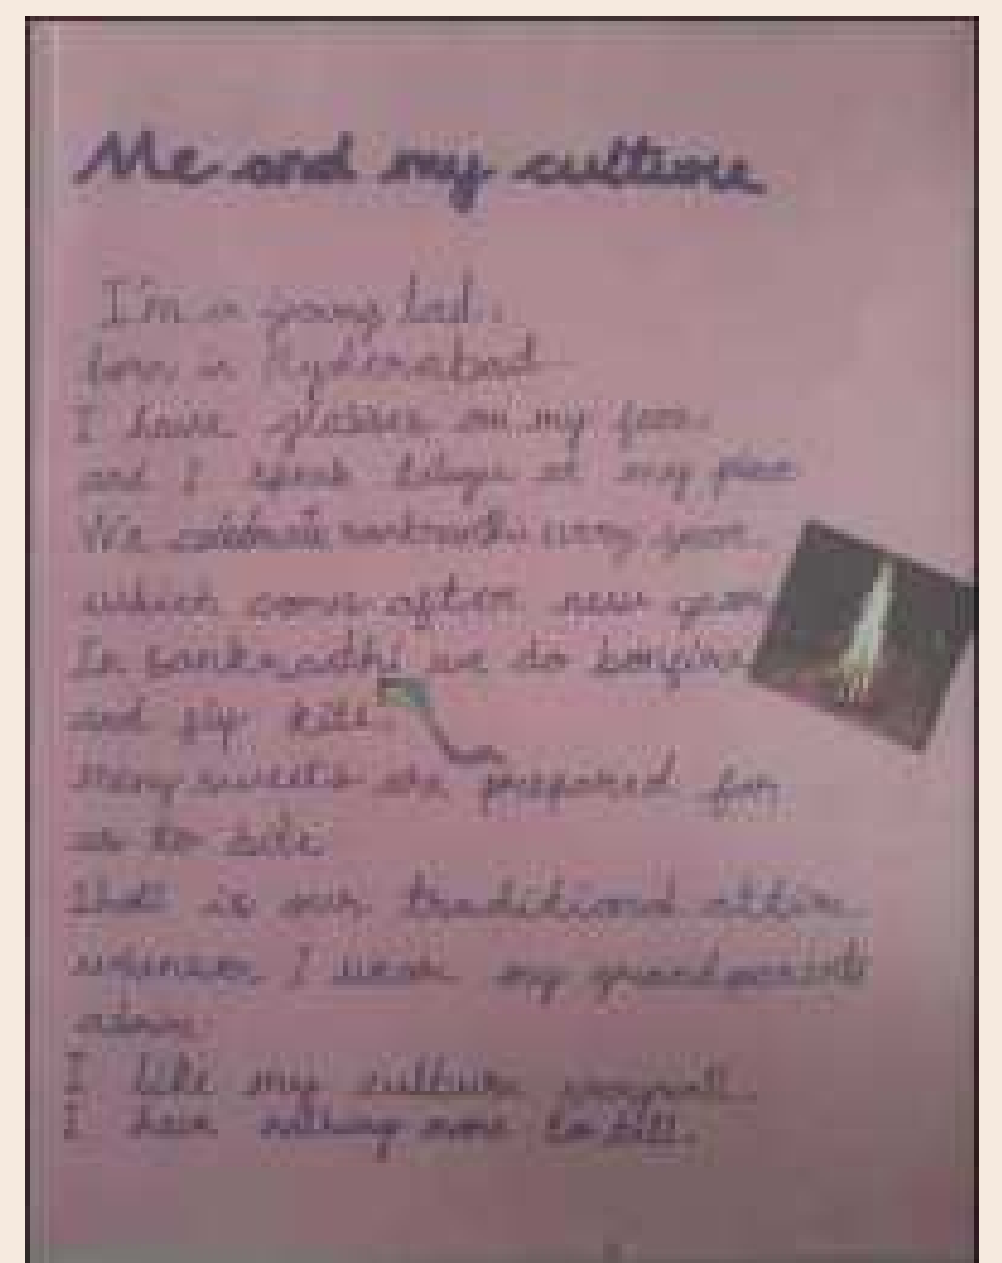 Me and my culture
I'm a young lad.
born in Hyderabad
I have glasses on my face.
and I speak telugu at my place
We celebrate sankradhi every year.
which comes after new year
In sankradhi we do bonfire
and fly kite.
Many sweets are prepared for
us to bite.
that is our traditional attire
whenever I wear my grandparents
admire.
I like my culture
I have nothing more to tell.